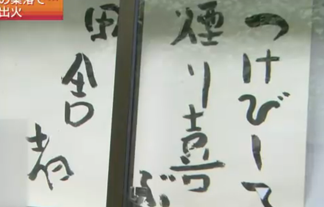 の集落で…
出火
つけびして
煙り喜ぶ
田舎者